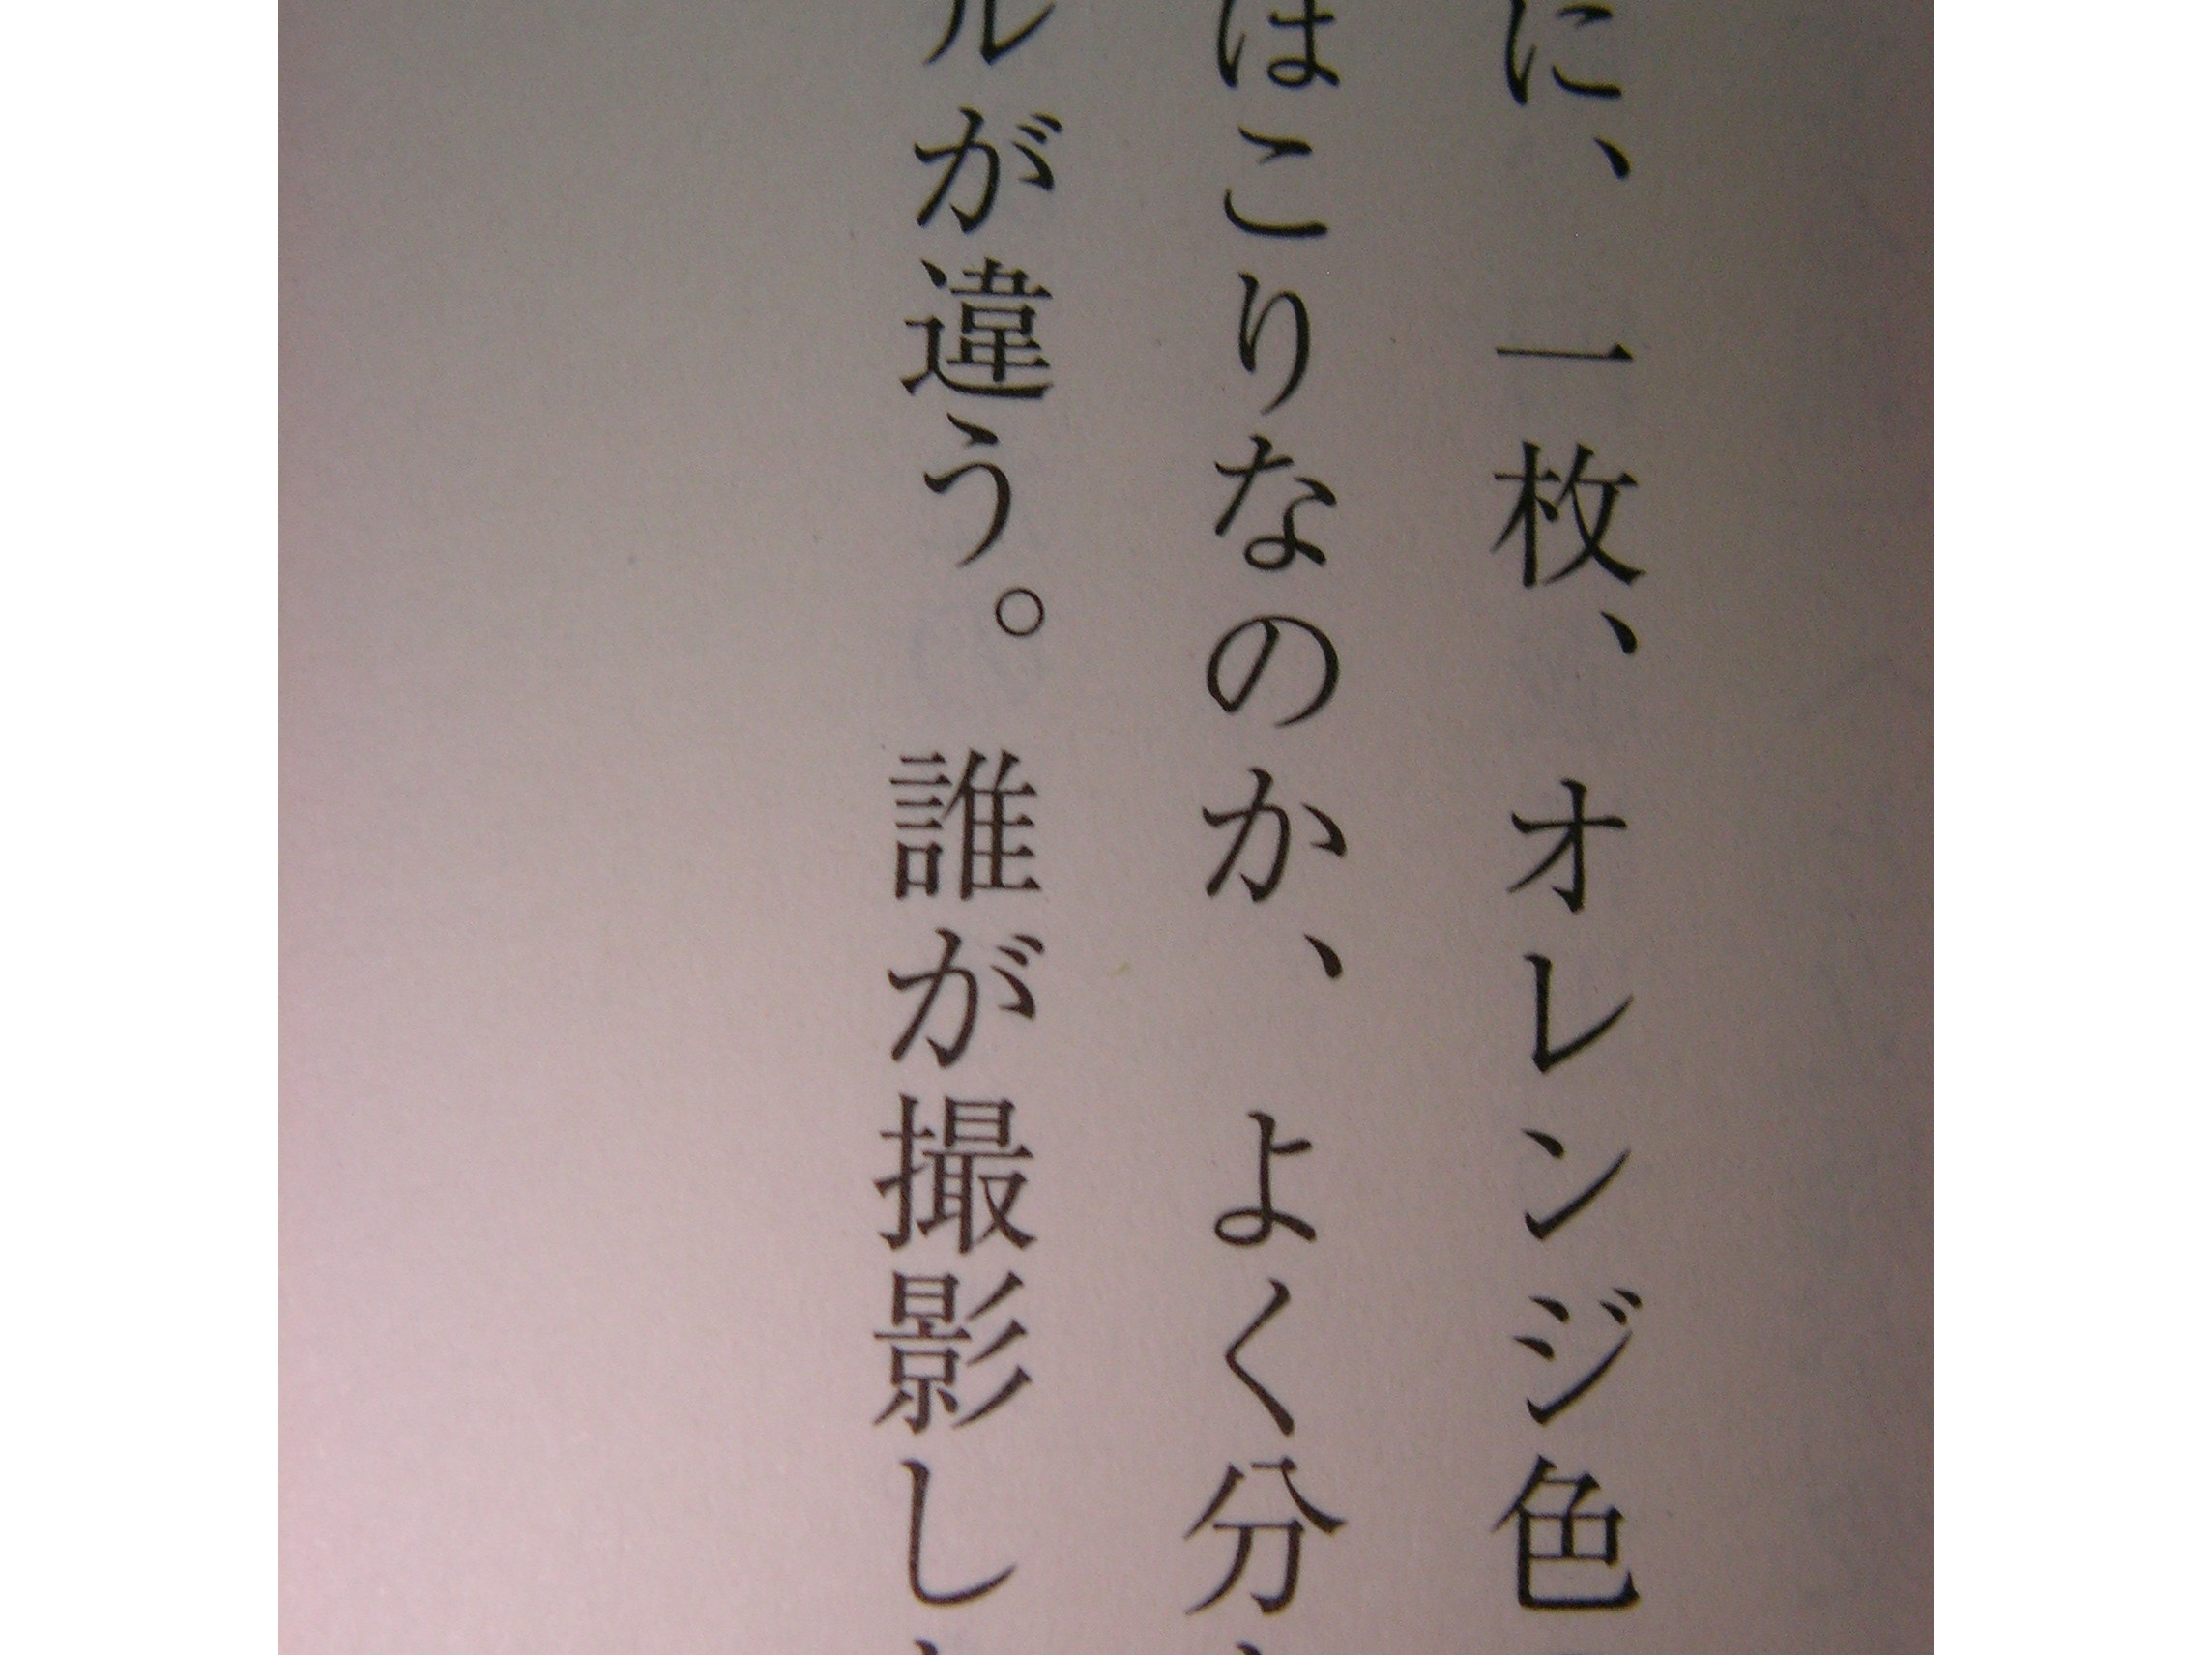 に、一枚、オレンジ色
はこりなのか、よく分
ルが違う。誰が撮影し